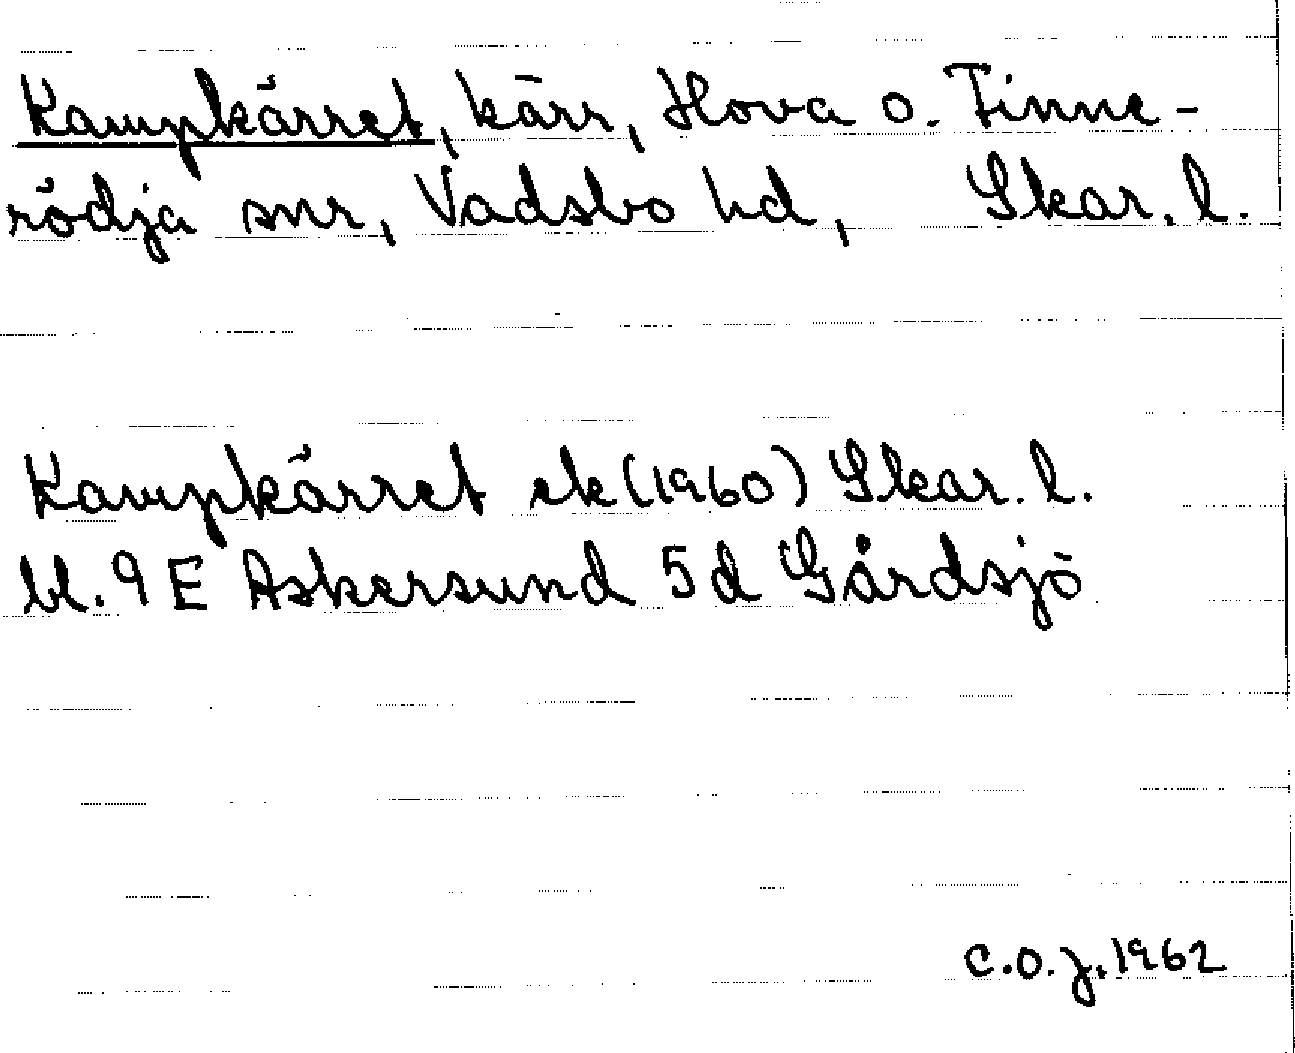 Kampkärret, kärr, Hova o. Finne-
rödja snr, Vadsbo hd, Skar. l.
Kampkärret ek (1960) Skar. l.
bl. 9 E Askersund 5 d Gårdsjö
C.O.J. 1962